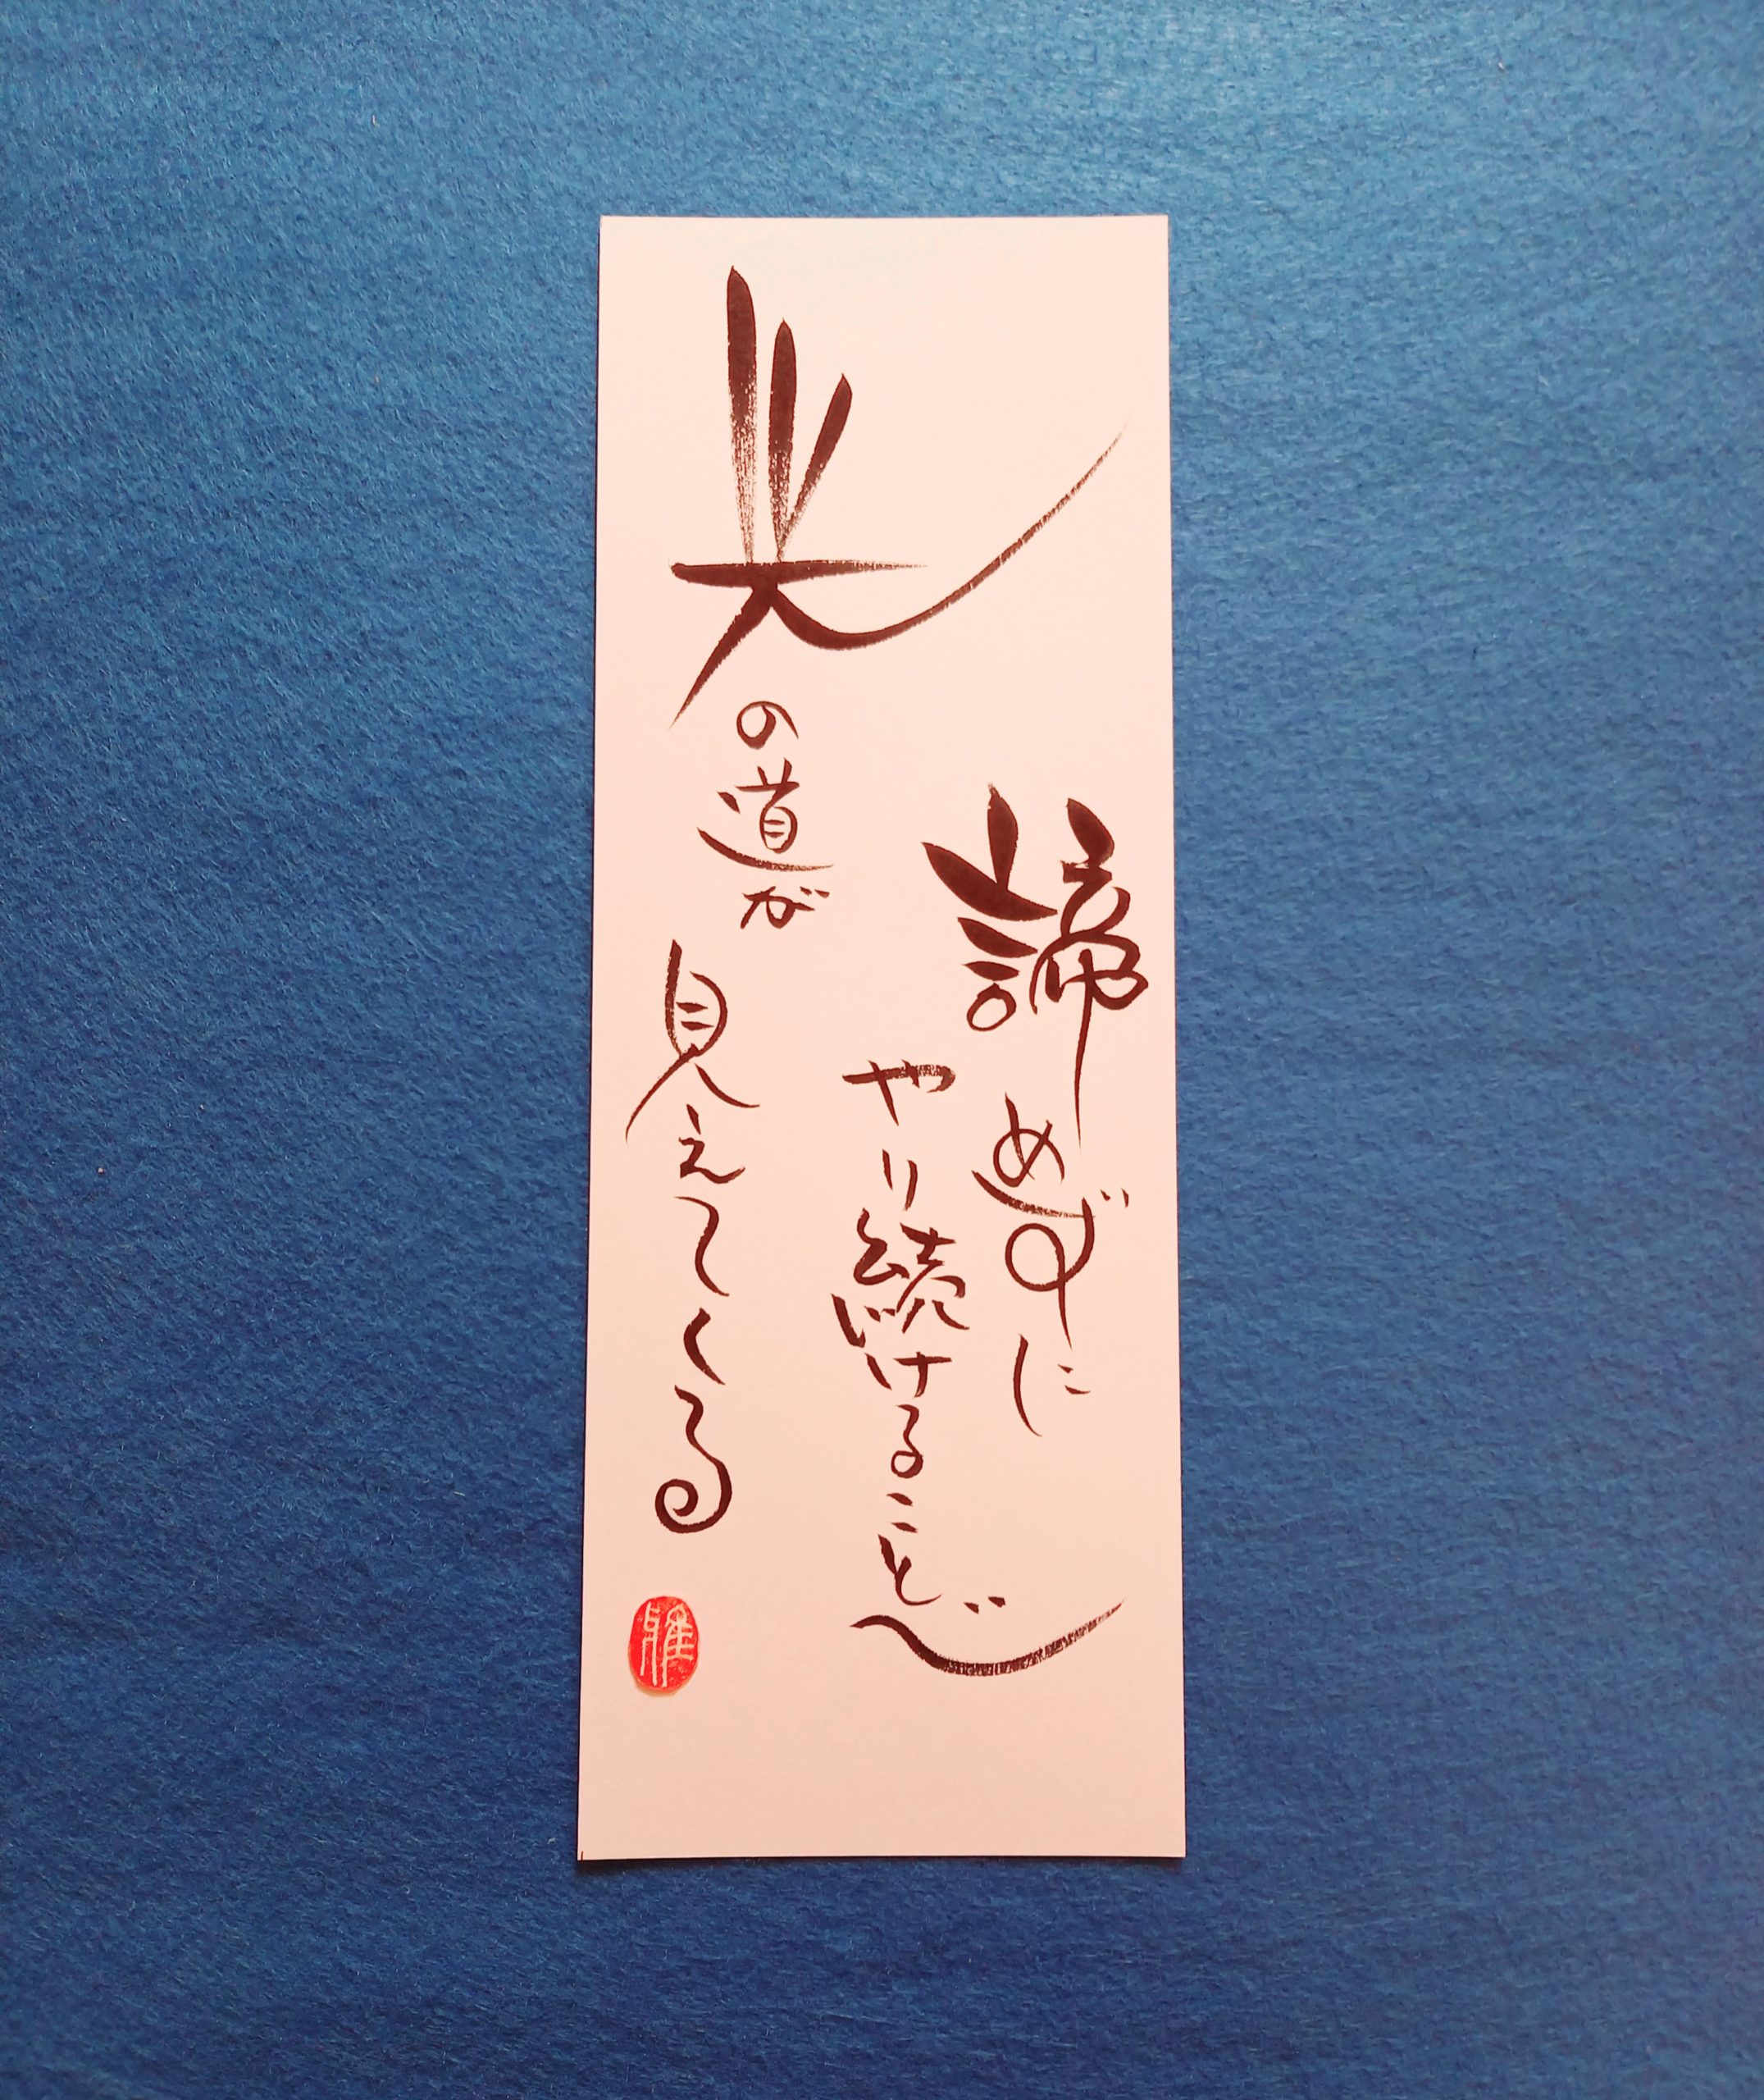 諦めずに
やり続けることで
光の道が
見えてくる
雅